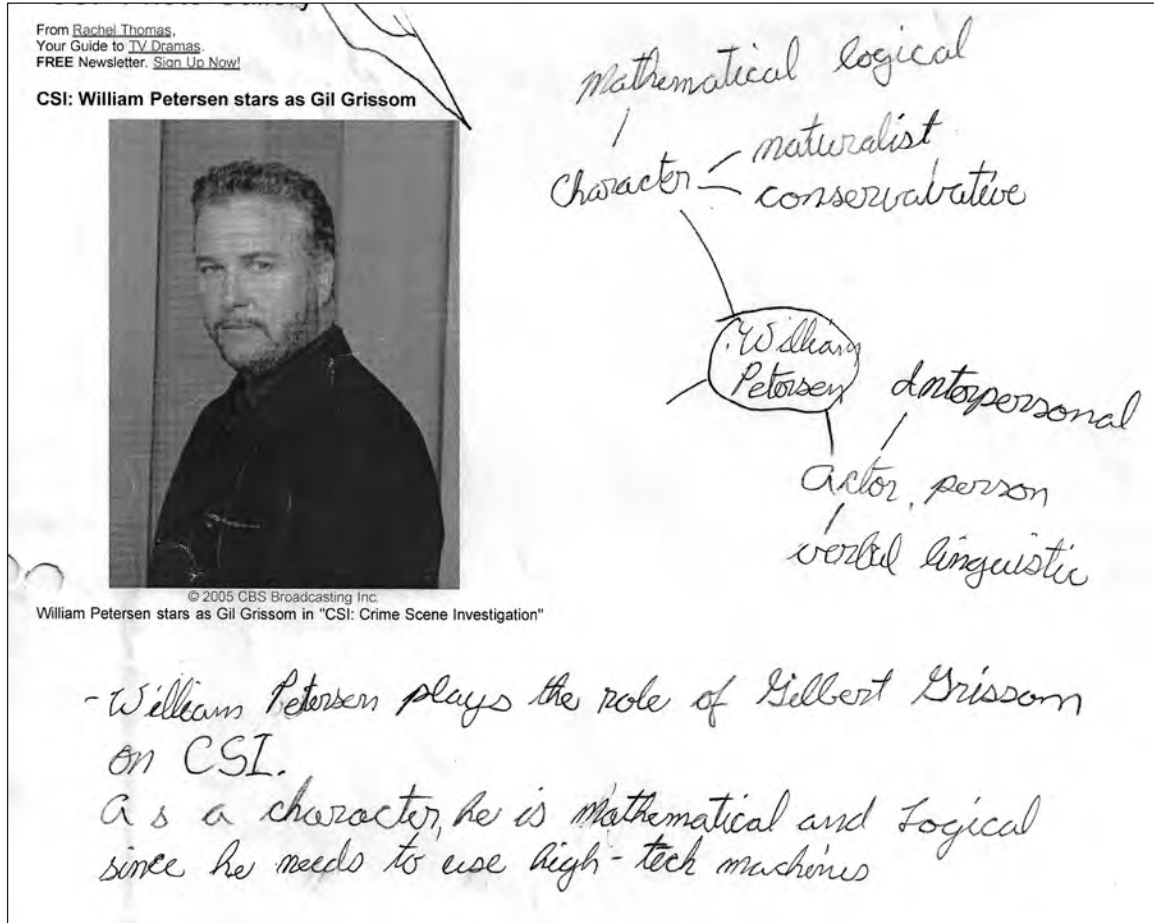 From Rachel Thomas,
Your Guide to TV Dramas.
FREE Newsletter. Sign Up Now!
CSI: William Petersen stars as Gil Grissom
© 2005 CBS Broadcasting Inc.
William Petersen stars as Gil Grissom in "CSI: Crime Scene Investigation"
Mathematical logical
Character
naturalist
conservabrative
William
Petersen
Interpersonal
actor, person
verbal linguistic
- William Petersen plays the role of Gilbert Grissom
on CSI.
As a character, he is Mathematical and Logical
since he needs to use high-tech machines